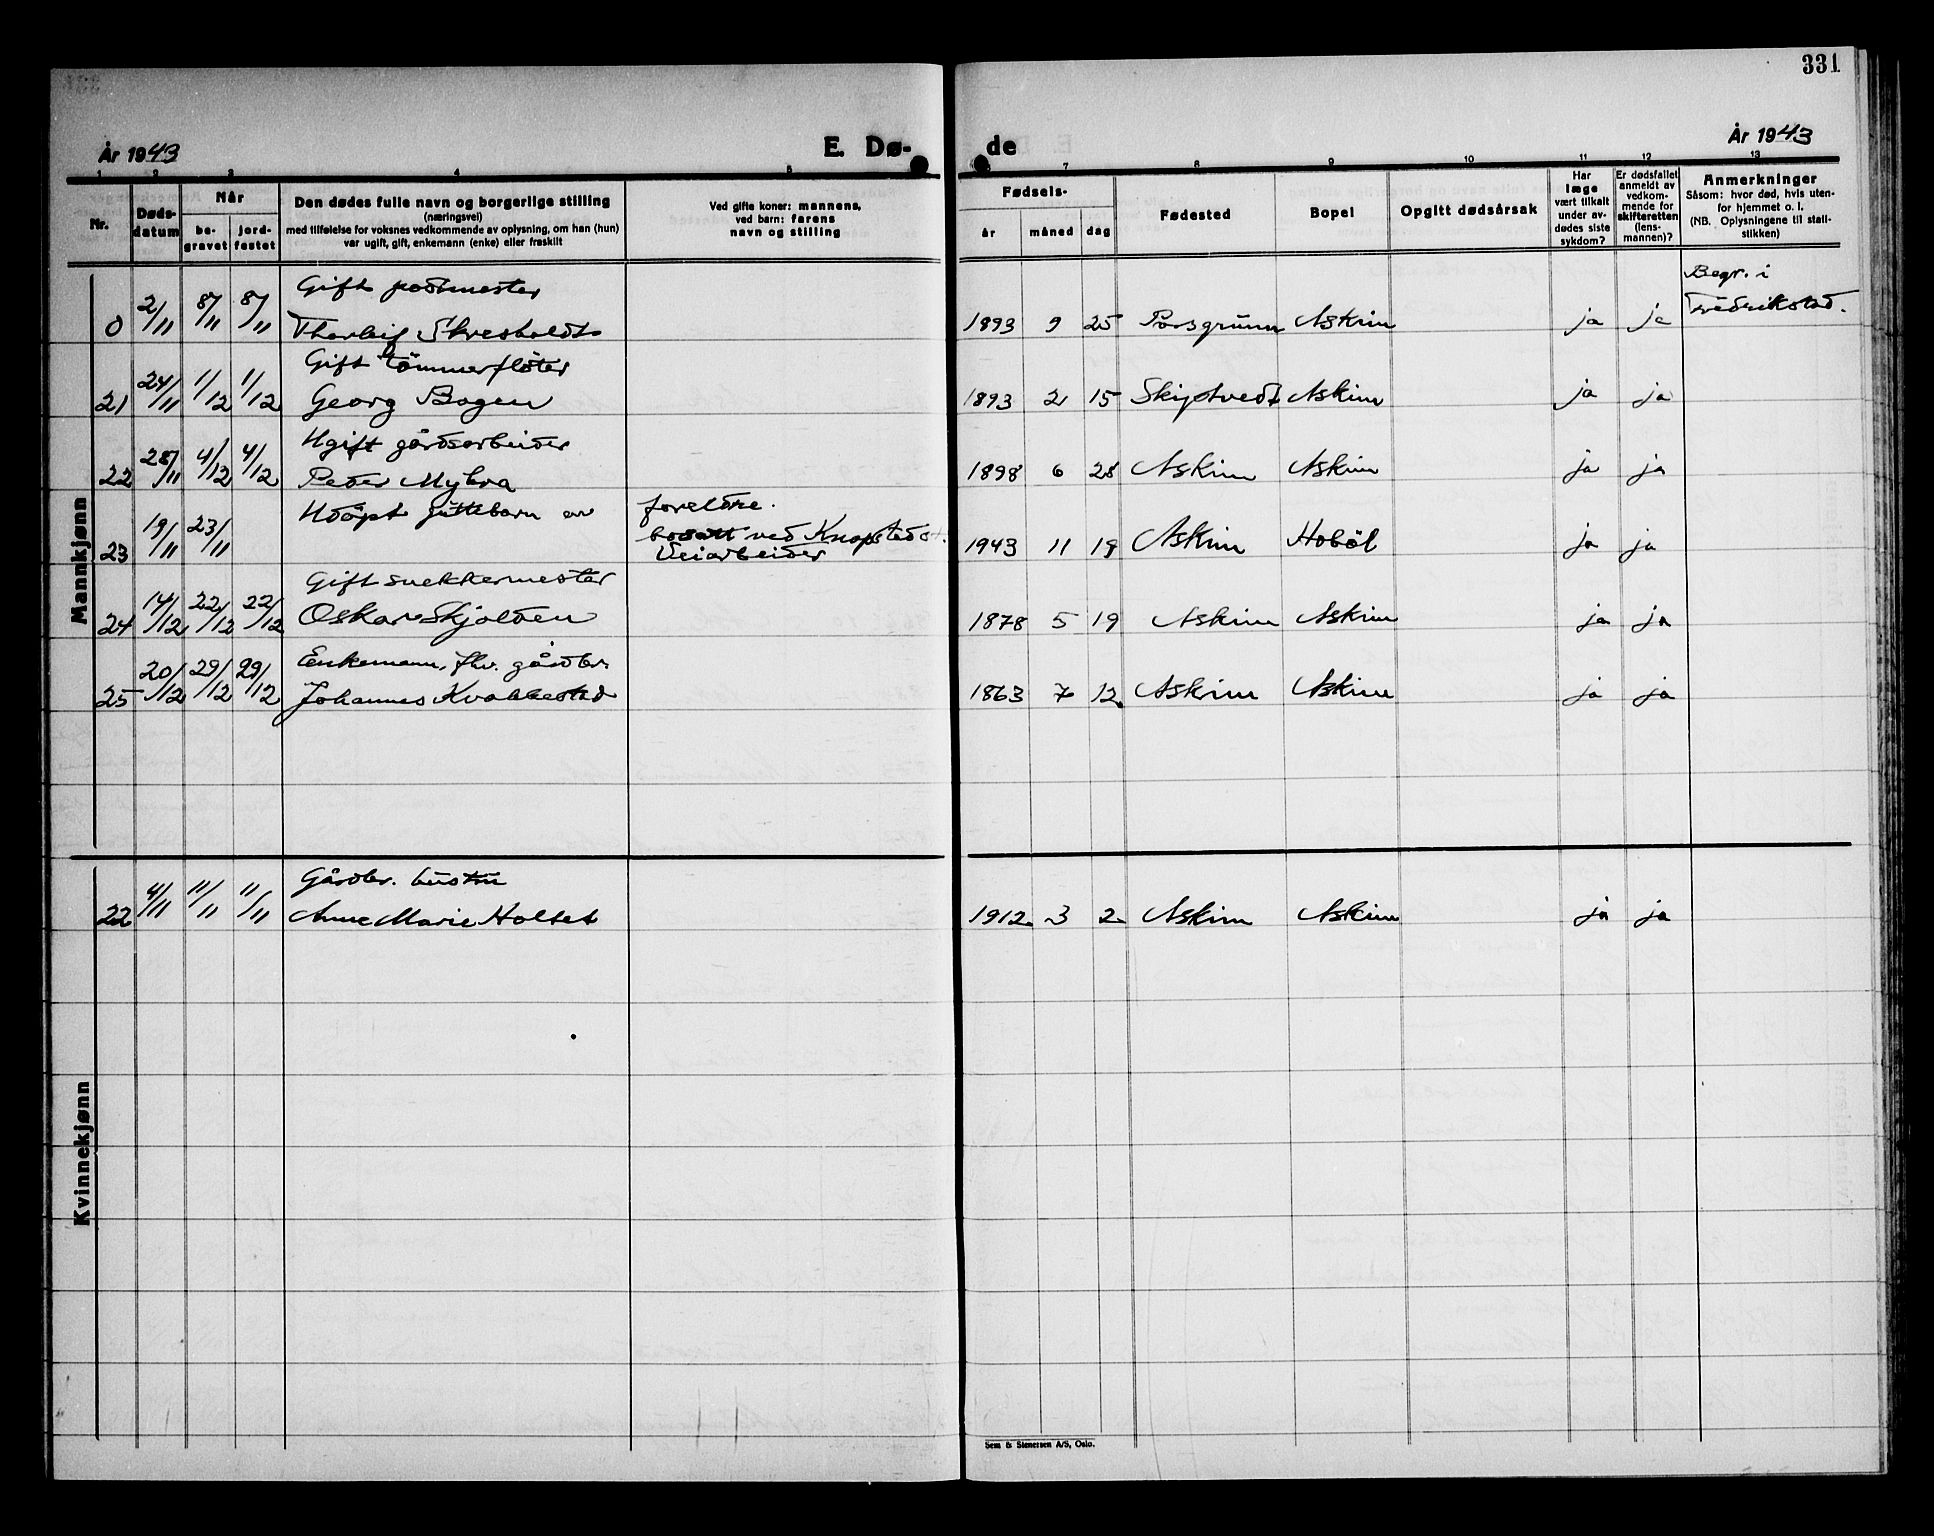 331
År 1943
E. Dø-
de
År 1943
1 2 3 4 5 7 8 9 10 11 12 13
Nr.
Døds-
datum
Når
be-
gravet
jord-
festet
Den dødes fulle navn og borgerlige stilling
(næringsvei)
med tilføielse for voksnes vedkommende av oplysning, om han (hun)
var ugift, gift, enkemann (enke) eller fraskilt
Ved gifte koner: mannens,
ved barn: farens
navn og stilling
Fødsels-
år måned dag
Fødested
Bopel
Opgitt dødsårsak
Har
læge
vært tilkalt
under av-
dødes siste
sykdom?
Er dødsfallet
anmeldt av
vedkom-
mende for
skifteretten
(lens-
mannen)?
Anmerkninger
Såsom: hvor død, hvis uten-
for hjemmet o. l.
(NB. Oplysningene til stati-
stikken)
Mannkjønn
Gift postmester Begr. i
0 2/11 8/11 8/11 Thorleif 1893 9 25 Porsgrunn Askim ja ja Fredrikstad.
Gift tömmerflöter
21 24/11 1/12 1/12 Georg Bogen 1893 2 15 Skiptvedt Askim ja ja
Ugift gårdsarbeider
22 28/11 4/12 4/12 Peder Myhra 1898 6 28 Askim Askim ja ja
Udöpt guttebarn av foreldre.
23 19/11 23/11 bosatt ved Knapstad st. 1943 11 19 Askim Hoböl ja ja
Veiarbeider
Gift snekkermester
24 14/12 22/12 22/12 Oskar Skjolden 1878 5 19 Askim Askim ja ja
Enkemann, fhv. gårdbr.
25 20/12 29/12 29/12 Johannes Kvakkestad 1863 7 12 Askim Askim ja ja
Kvinnekjønn
Gårdbr. hustru
22 4/11 11/11 11/11 Anne Marie Holtet 1912 3 2 Askim Askim ja ja
Sem & Stenersen A/S, Oslo.